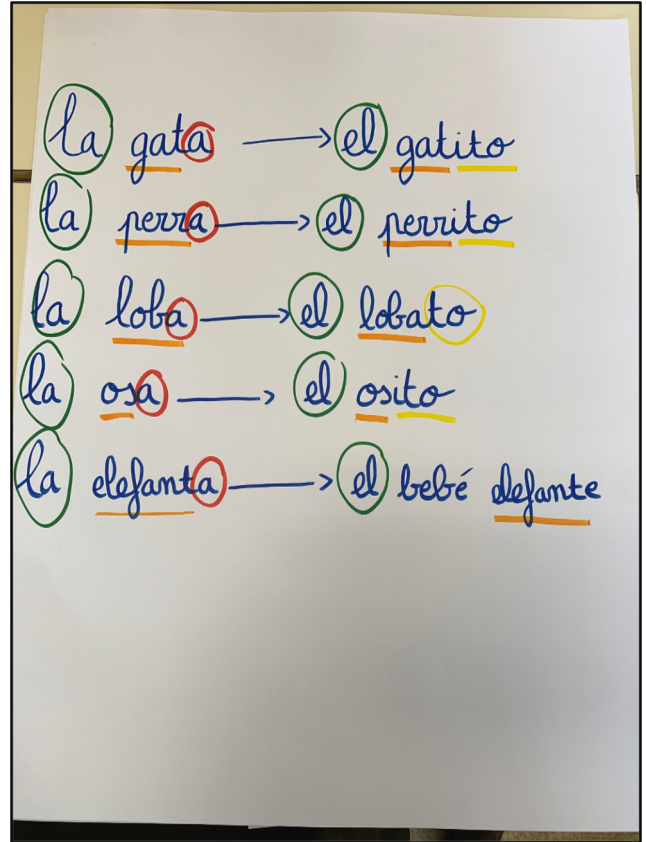 la gata → el gatito
la perra → el perrito
la loba → el lobato
la osa → el osito
la elefanta → el bebé elefante